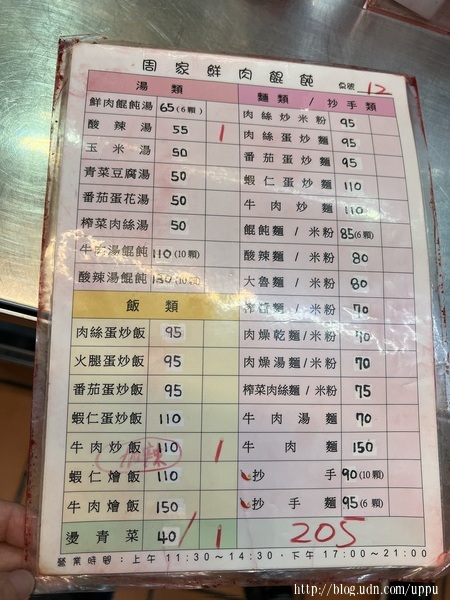 周家鮮肉餛飩 桌號 12
湯類
鮮肉餛飩湯 65(6顆)
酸辣湯 55 1
玉米湯 50
青菜豆腐湯 50
番茄蛋花湯 50
榨菜肉絲湯 50
湯餛飩 110(10顆)
酸辣湯餛飩
飯類
肉絲蛋炒飯 95
火腿蛋炒飯 95
番茄蛋炒飯 95
蝦仁蛋炒飯 110
牛肉炒飯 110 1
蝦仁燴飯 110
牛肉燴飯 150
燙青菜 40 1
麵類/抄手類
肉絲炒米粉 95
肉絲蛋炒麵 95
番茄蛋炒麵 95
蝦仁蛋炒麵 110
牛肉炒麵 110
餛飩麵/米粉 85(6顆)
酸辣麵/米粉 80
大魯麵/米粉 80
麵/米粉 70
肉燥乾麵/米粉 70
肉燥湯麵/米粉 70
榨菜肉絲麵/米粉 75
牛肉湯麵 70
牛肉麵 150
抄手 90(10顆)
抄手麵 95(6顆)
205
營業時間:上午11:30~14:30·下午17:00~21:00
http://blog.udn.com/uppu